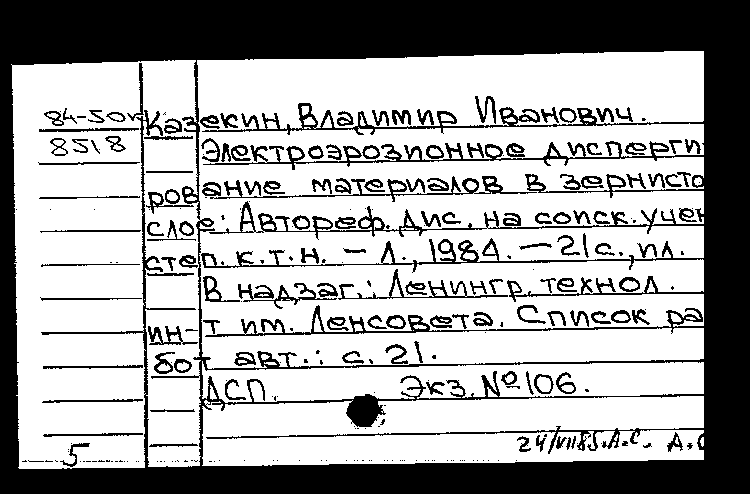 84-50к Казекин, Владимир Иванович.
8518 Электроэрозионное дисперги
рование материалов в зернисто
слое: Автореф. дис. на соиск. учен
степ. к.т.н. — Л., 1984. — 21 с., ил.
В надзаг.: Ленингр. технол.
ин-т им. Ленсовета. Список ра
бот авт.: с. 21.
ДСП. Экз. № 106.
24/VII85. А.С. А.С
5